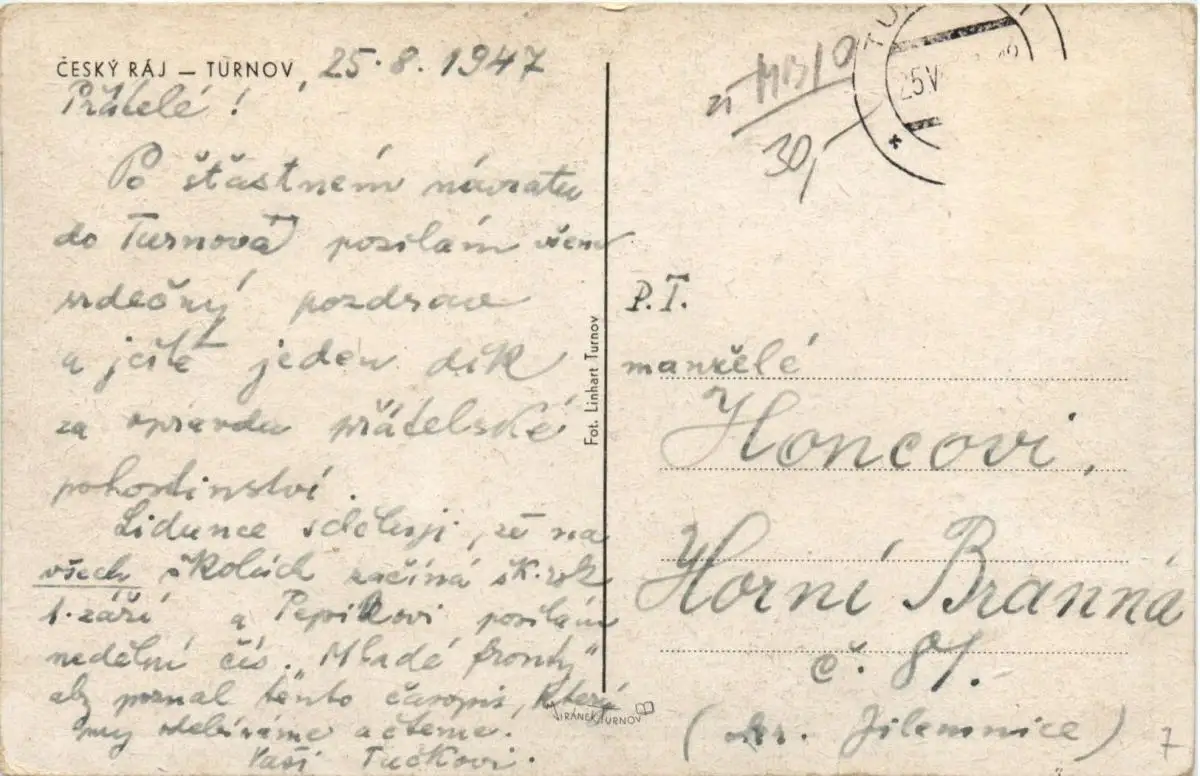 ČESKÝ RÁJ — TURNOV, 25.8.1947
Přátelé!
Po šťastném návratu
do Turnova posílám všem
srdečný pozdrav
a ještě jeden dík
za opravdu přátelské
pohostinství.
Lidunce sděluji, že na
všech školách začíná šk. rok
1. září a Pepíkovi posílám
nedělní čís. „Mladé fronty"
aby poznal tento časopis, který
my odebíráme a čteme.
Vaši Tučkovi.
Fot. Linhart Turnov
JIRÁNEK TURNOV
30,-
TU
25.V
P.T.
manželé
Honcovi,
Horní Branná
č. 81.
(okr. Jilemnice)
7